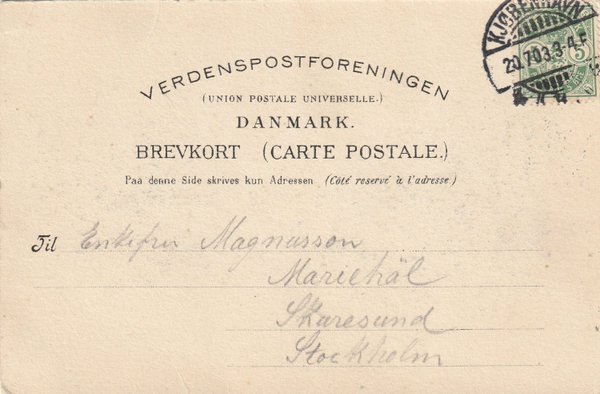 KJØBENHAVN
20.7.03.3-4.E
5
VERDENSPOSTFORENINGEN
(UNION POSTALE UNIVERSELLE.)
DANMARK.
BREVKORT (CARTE POSTALE.)
Paa denne Side skrives kun Adressen (Côté reservé à l'adresse)
Til Enkefru Magnusson
Mariehäl
Skuresund
Stockholm